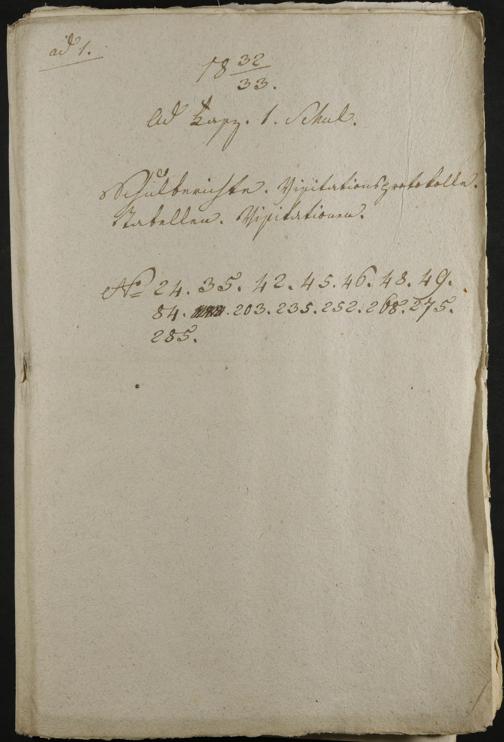 ad 1.
18 32/33.
Ad Kapz. 1. Schul.
Schulberichte. Visitationsprotokolle.
Tabellen. Visitationen.
No 24. 35. 42. 45. 46. 48. 49.
84. 203. 235. 252. 268. 275.
285.